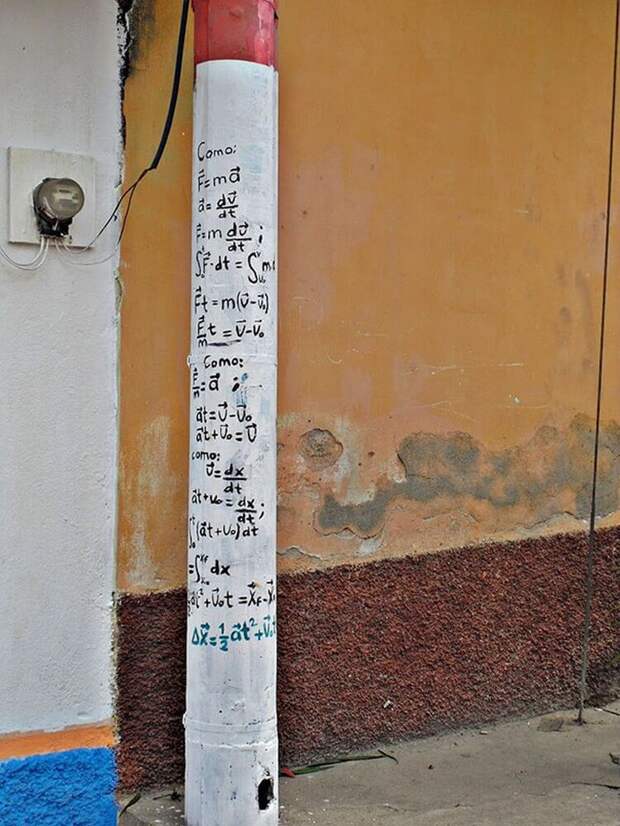 Como:
F⃗=ma⃗
a⃗=dv⃗/dt
F⃗=m dv⃗/dt;
∫₀ᵗF⃗·dt=∫ᵥ₀ᵛm
F⃗t=m(v⃗-v⃗₀)
F⃗/m t=v⃗-v⃗₀
Como:
F⃗/m=a⃗;
a⃗t=v⃗-v⃗₀
a⃗t+v⃗₀=v⃗
como:
v⃗=dx/dt
a⃗t+v₀=dx/dt;
∫₀ᵗ(a⃗t+v₀)dt
=∫dx
a⃗t²+v⃗₀t=x⃗F-x⃗
Δx⃗=½a⃗t²+v⃗₀t